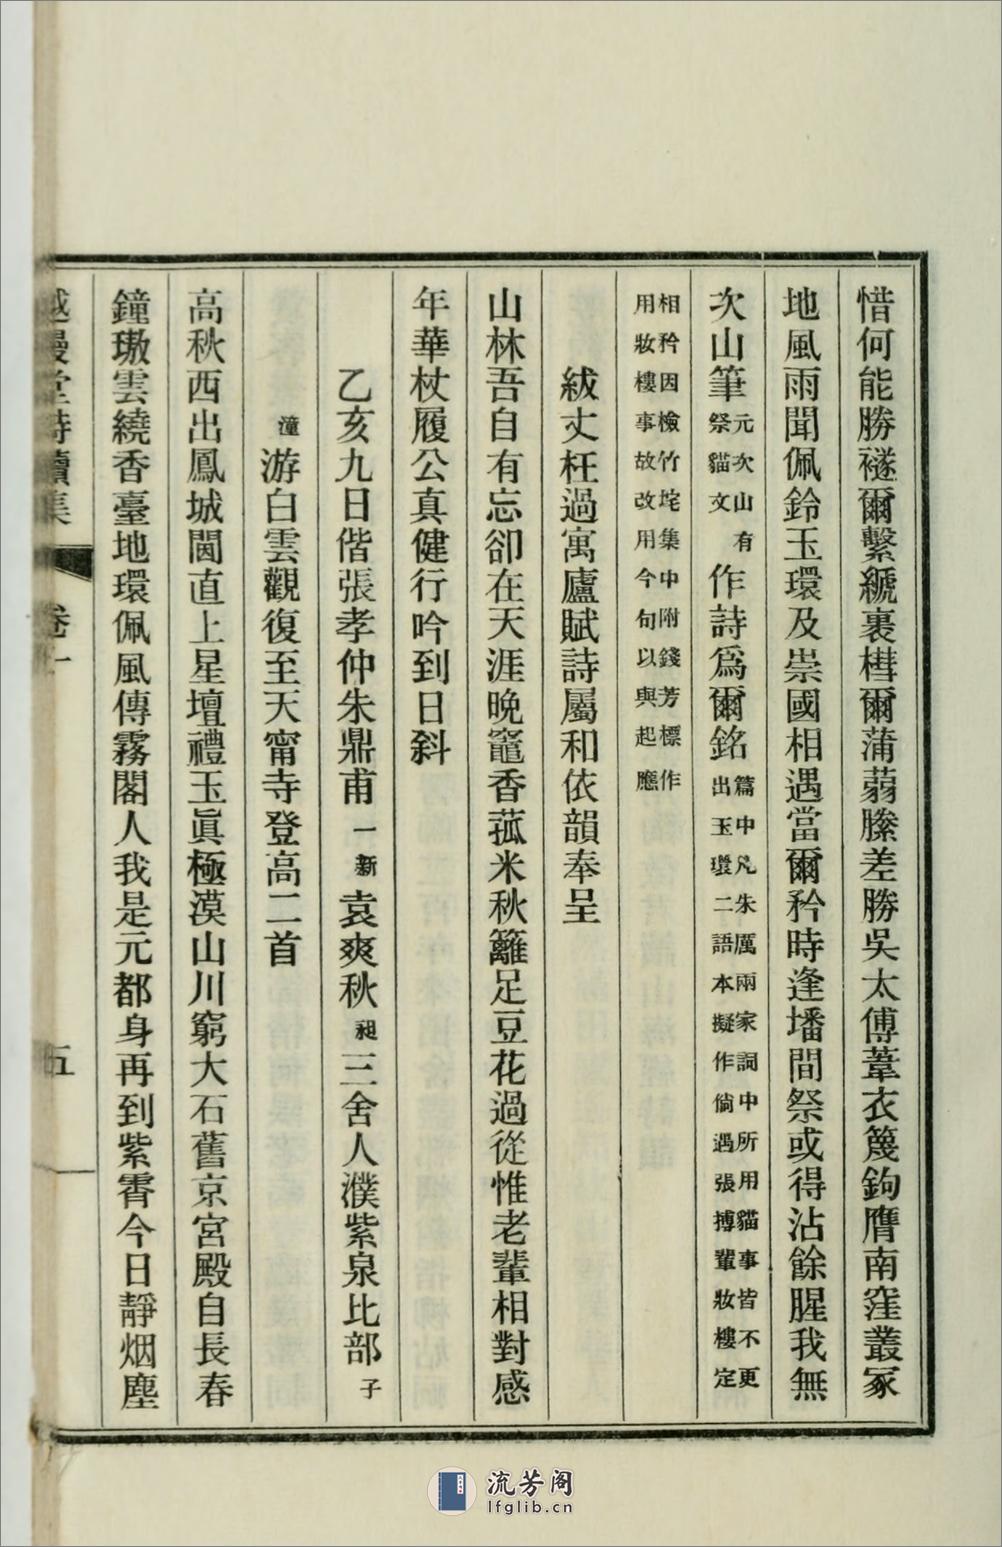 惜何能勝襚爾繫緶裹槥爾蒲蒻縢差勝吳太傅葦衣篾鉤膺南窪叢冢
地風雨聞佩鈴玉環及祟國相遇當爾矜時逢墦間祭或得沾餘腥我無
次山筆元次山有祭貓文作詩爲爾銘篇中凡朱厲兩家詞中所用貓事皆不更出玉環二語本擬作倘遇張搏輩妝樓定
相矜因檢竹垞集中附錢芳標作用妝樓事故改用今句以與起應
紱丈枉過寓廬賦詩屬和依韻奉呈
山林吾自有忘卻在天涯晚竈香菰米秋籬足豆花過從惟老輩相對感
年華杖履公真健行吟到日斜
乙亥九日偕張孝仲朱鼎甫一新袁爽秋昶三舍人濮紫泉比部子
潼游白雲觀復至天甯寺登高二首
高秋西出鳳城闉直上星壇禮玉眞極漠山川窮大石舊京宮殿自長春
鐘璈雲繞香臺地環佩風傳霧閣人我是元都身再到紫霄今日靜烟塵
越縵堂詩續集 卷一 五
流芳阁
lfglib.cn